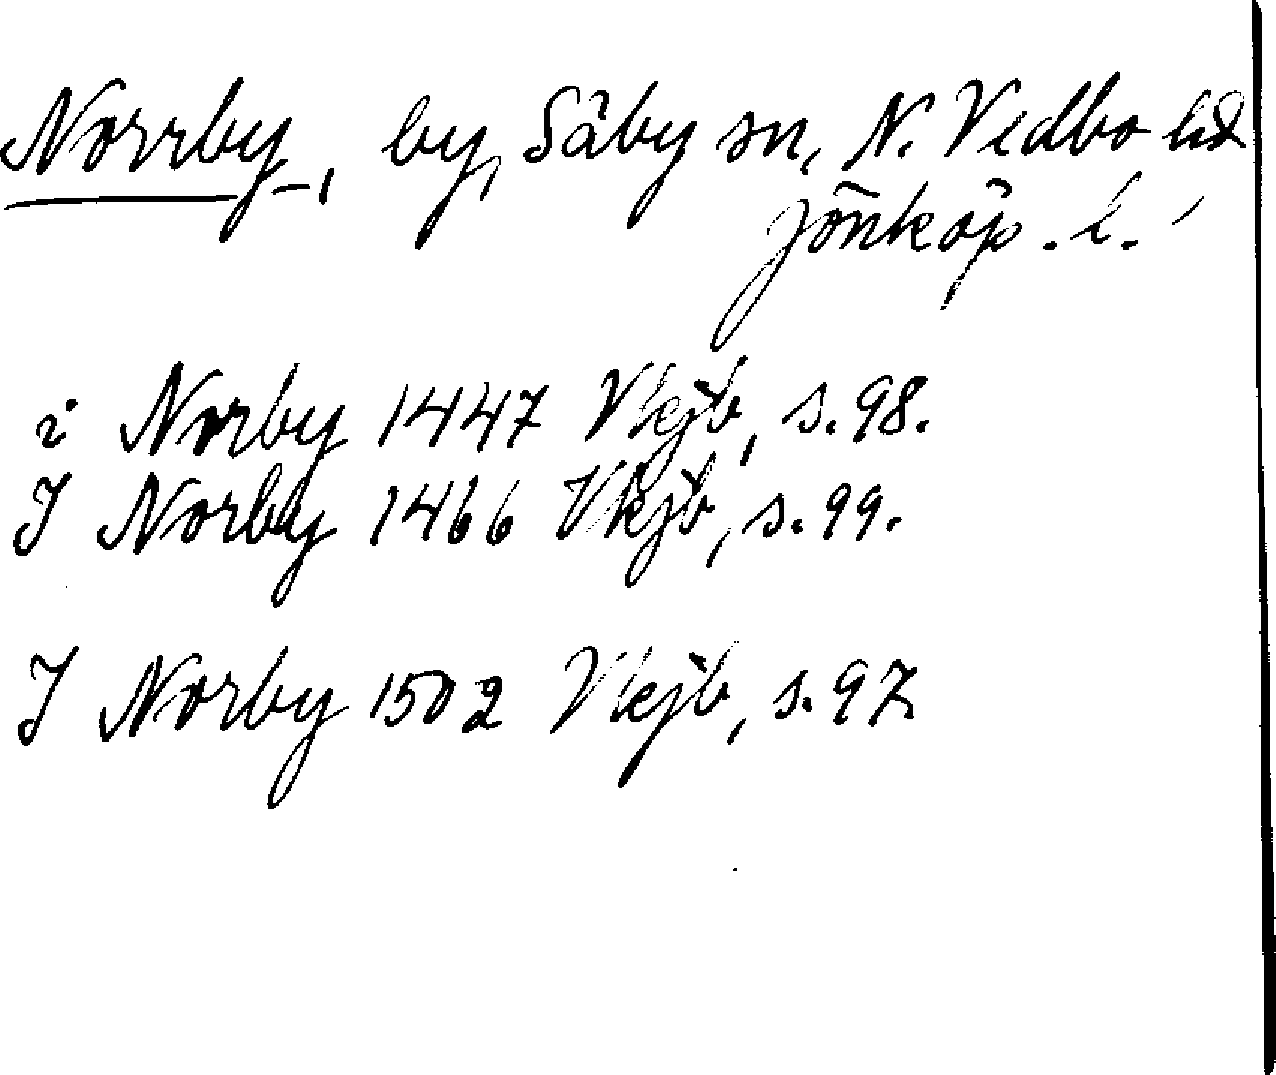 Norrby, by, Säby sn, N. Vedbo hd,
Jönköp. l.
i Norby 1447 Vkjb, s. 98.
I Norby 1466 Vkjb, s. 99.
I Norby 1502 Vkjb, s. 97